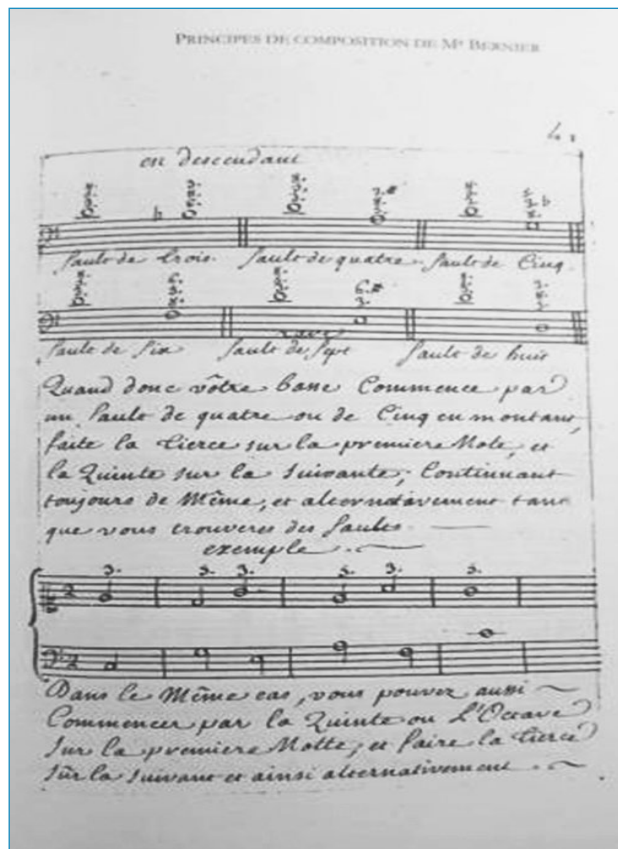 PRINCIPES DE COMPOSITION DE Mr BERNIER
en descendant
Sault de trois. Sault de quatre. Sault de Cinq.
Sault de Six Sault de Sept Sault de huit
Quand donc vôtre basse Commence par
un Sault de quatre ou de Cinq en montant,
faite la tierce sur la premiere Note, et
la Quinte sur la Suivante, Continuant
toujours de Même, et alternativement tant
que vous trouveres des Saults.
exemple.
3. 3. 3. 3. 3. 3.
Dans le Même cas, vous pouvez aussi
Commencer par la Quinte ou L'Octave
Sur la premiere Notte, et faire la tierce
Sur la Suivant et ainsi alternativement.